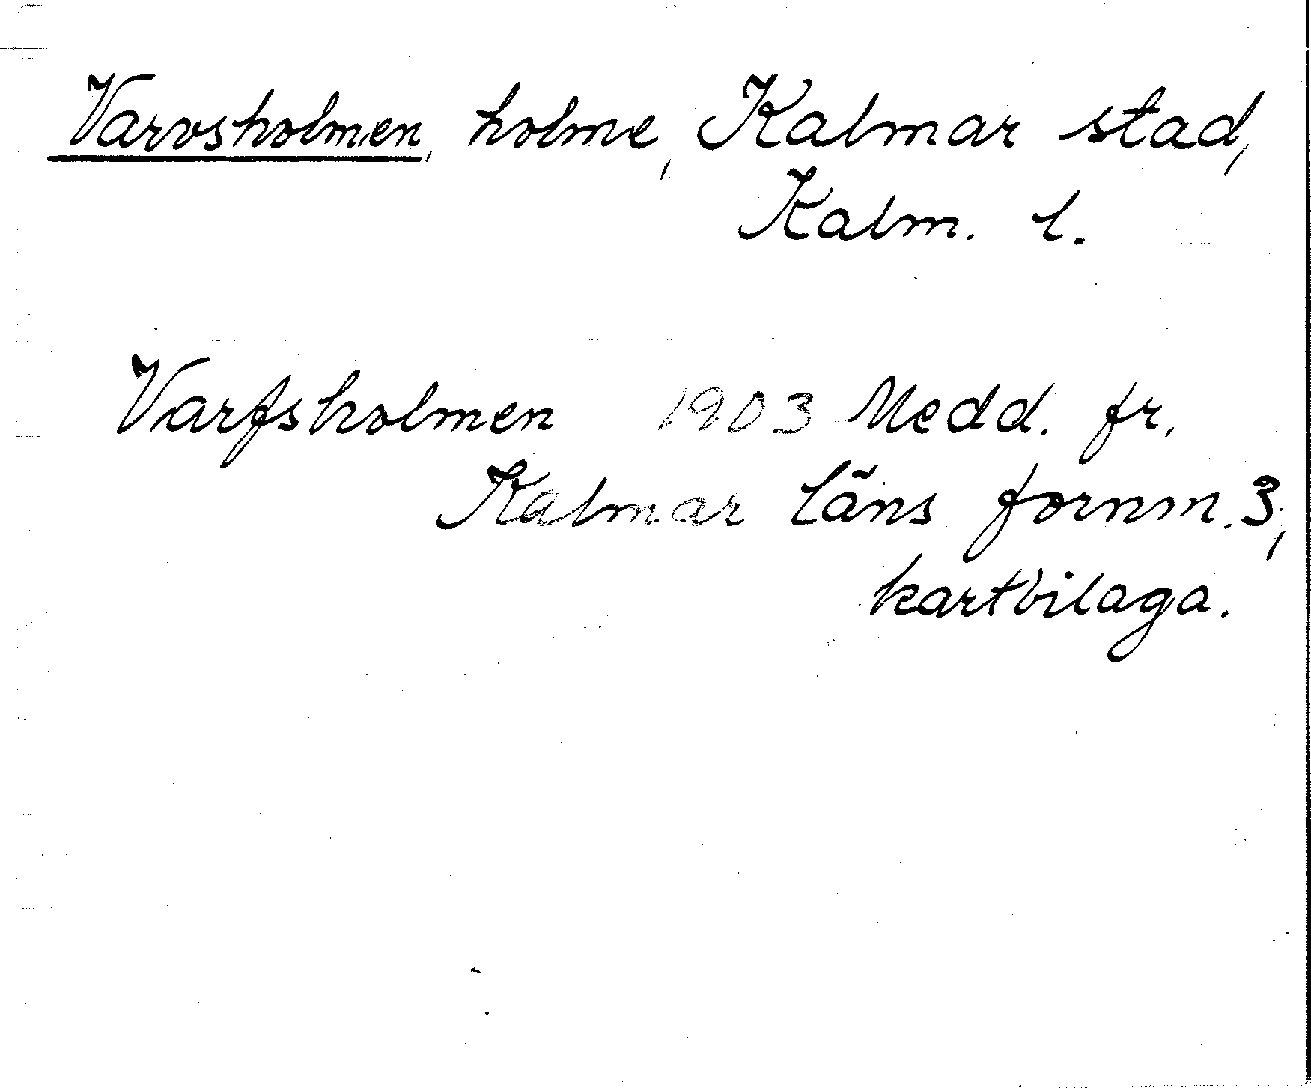 Varvsholmen, holme, Kalmar stad,
Kalm. l.
Varfsholmen 1903 Medd. fr.
Kalmar läns fornm. 3,
kartbilaga.